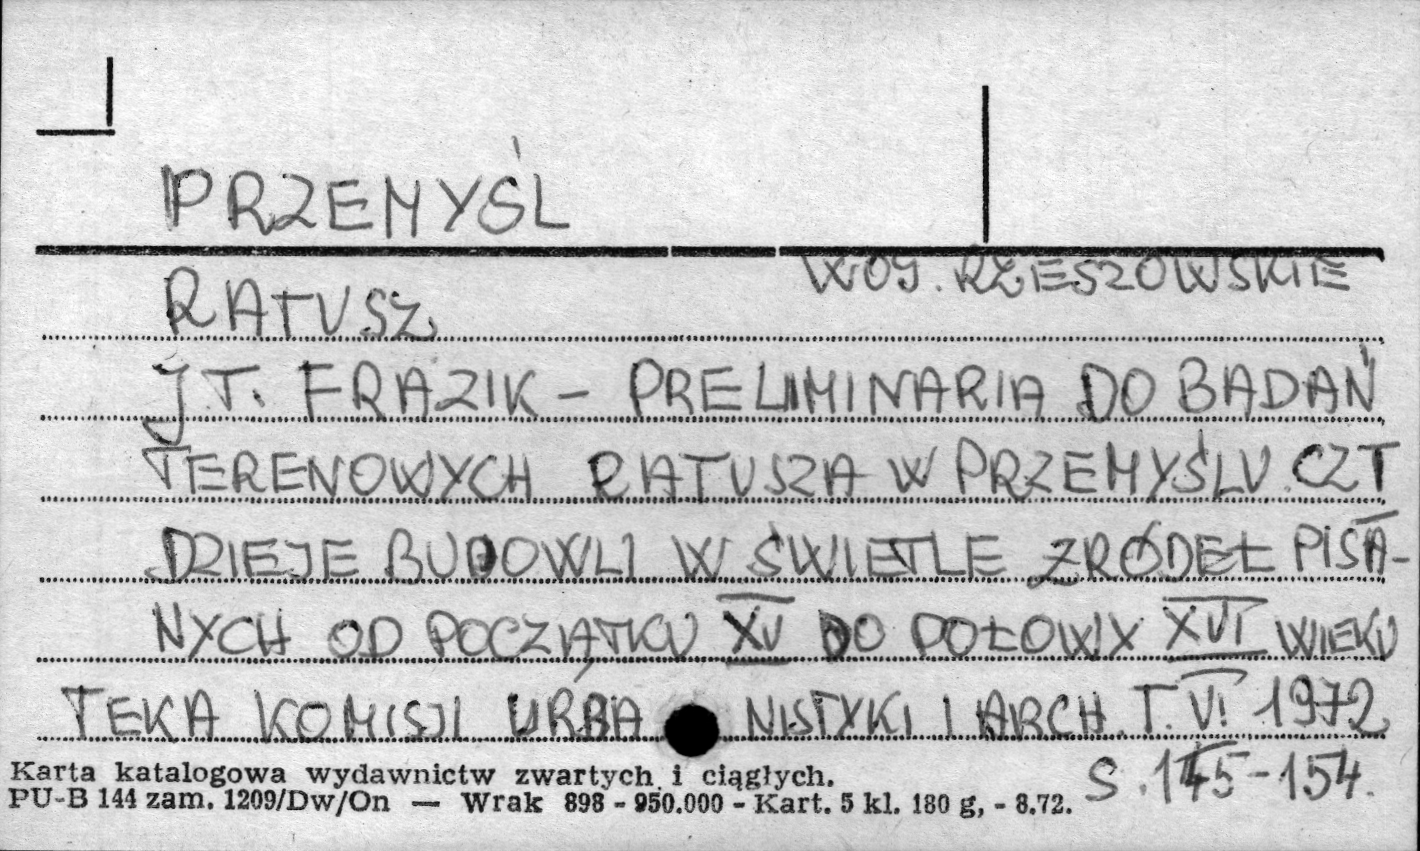 PRZEMYŚL
WOJ. RZESZOWSKIE
RATUSZ
J.T. FRAZIK – PRELIMINARIA DO BADAŃ
TERENOWYCH RATUSZA W PRZEMYŚLU. CZ I
DZIEJE BUDOWLI W ŚWIETLE ŹRÓDEŁ PISA-
NYCH OD POCZĄTKU XV DO POŁOWY XVI WIEKU
TEKA KOMISJI URBANISTYKI I ARCH. T. VI 1972
S. 145-154.
Karta katalogowa wydawnictw zwartych i ciągłych.
PU-B 144 zam. 1209/Dw/On — Wrak 898 - 950.000 - Kart. 5 kl. 180 g, - 8.72.